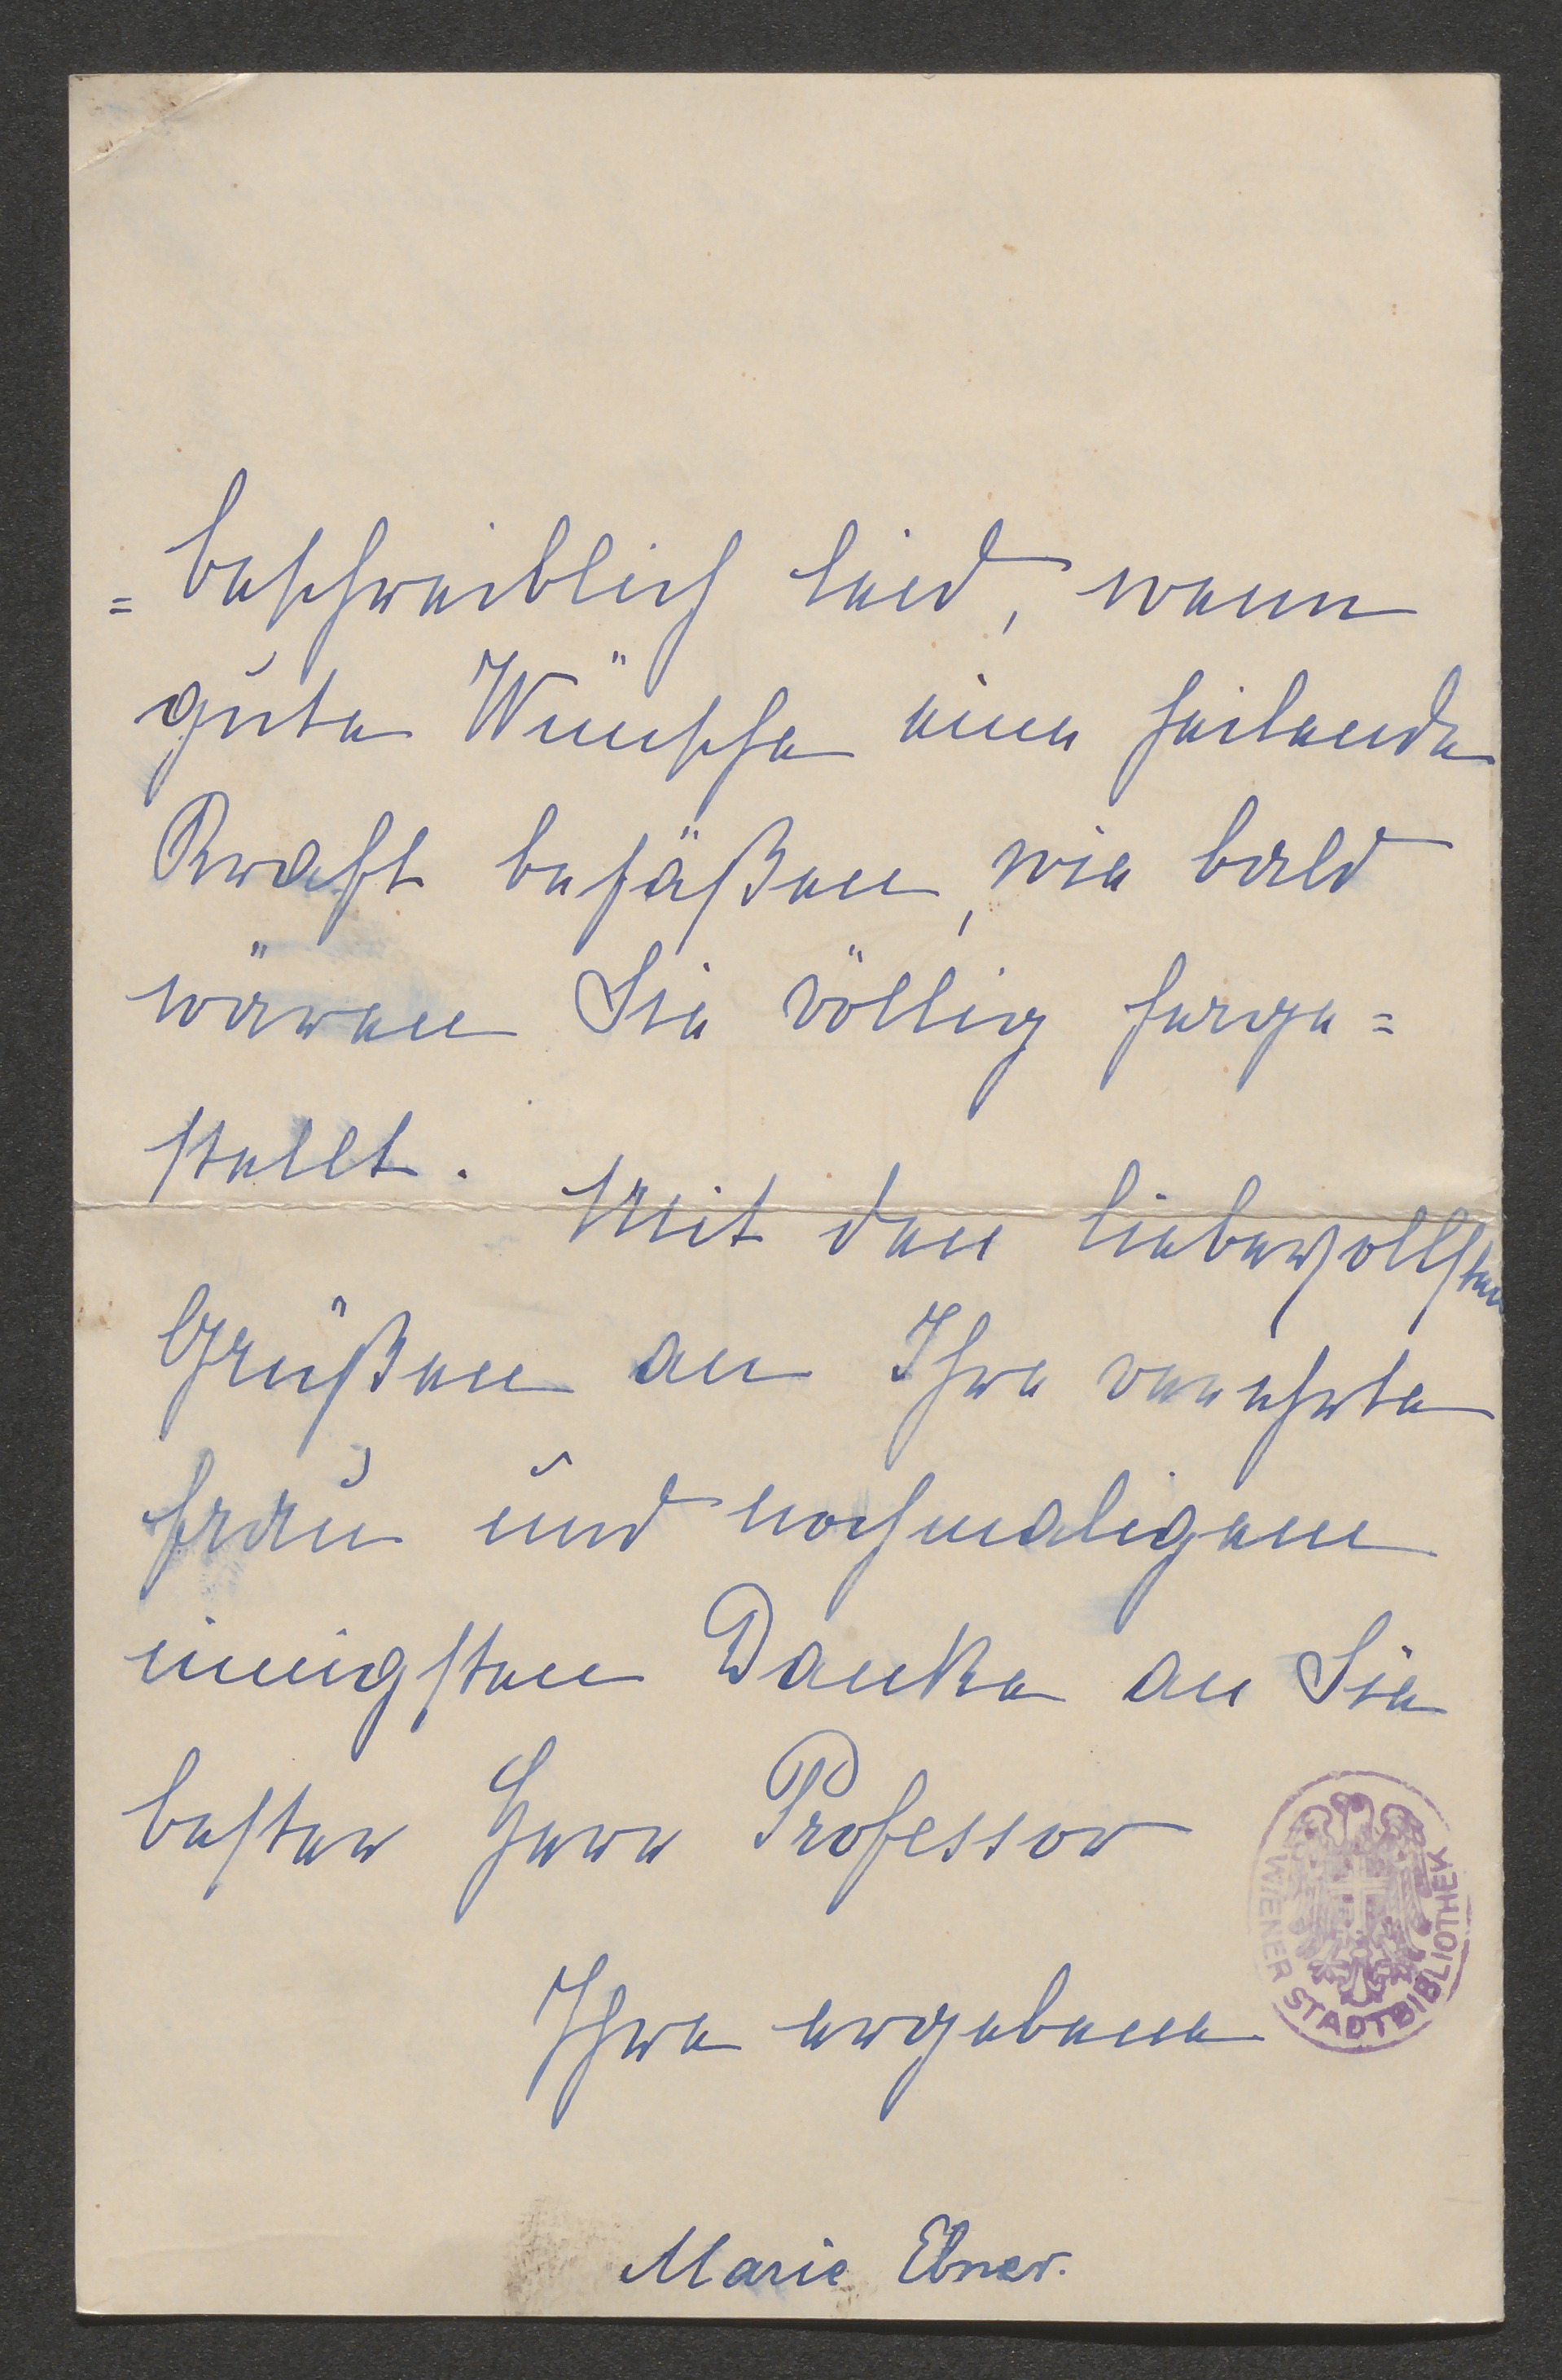 =beschreiblich leid, wenn
gute Wünsche eine heilende
Kraft besäßen, wie bald
wären Sie völlig herge=
stellt.
Mit den liebevollsten
Grüßen an Ihre verehrte
Frau und nochmaligem
innigsten Danke an Sie
bester Herr Professor
Ihre ergebene
WIENER STADTBIBLIOTHEK
Marie Ebner.